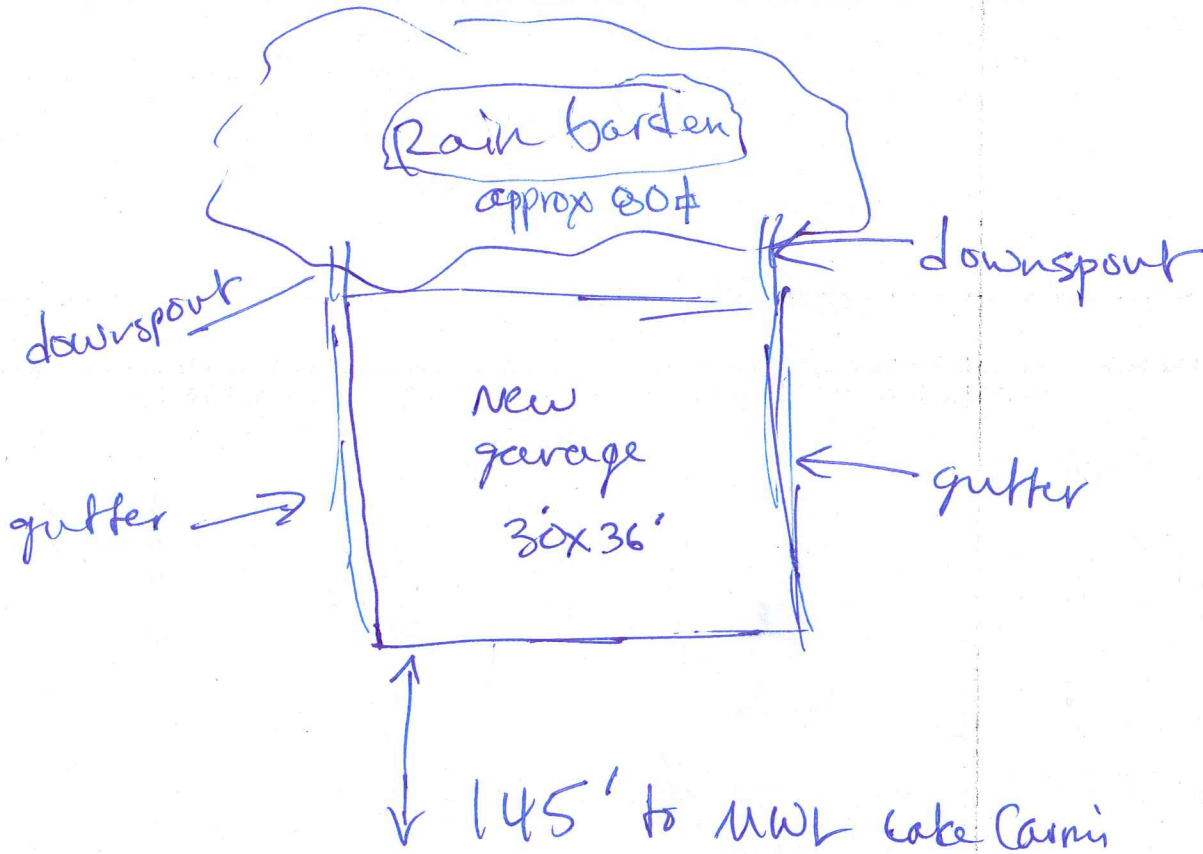 Rain Garden
approx 80⌗
downspout
downspout
New
garage
30'x36'
gutter
gutter
145' to MWL Lake Carmi